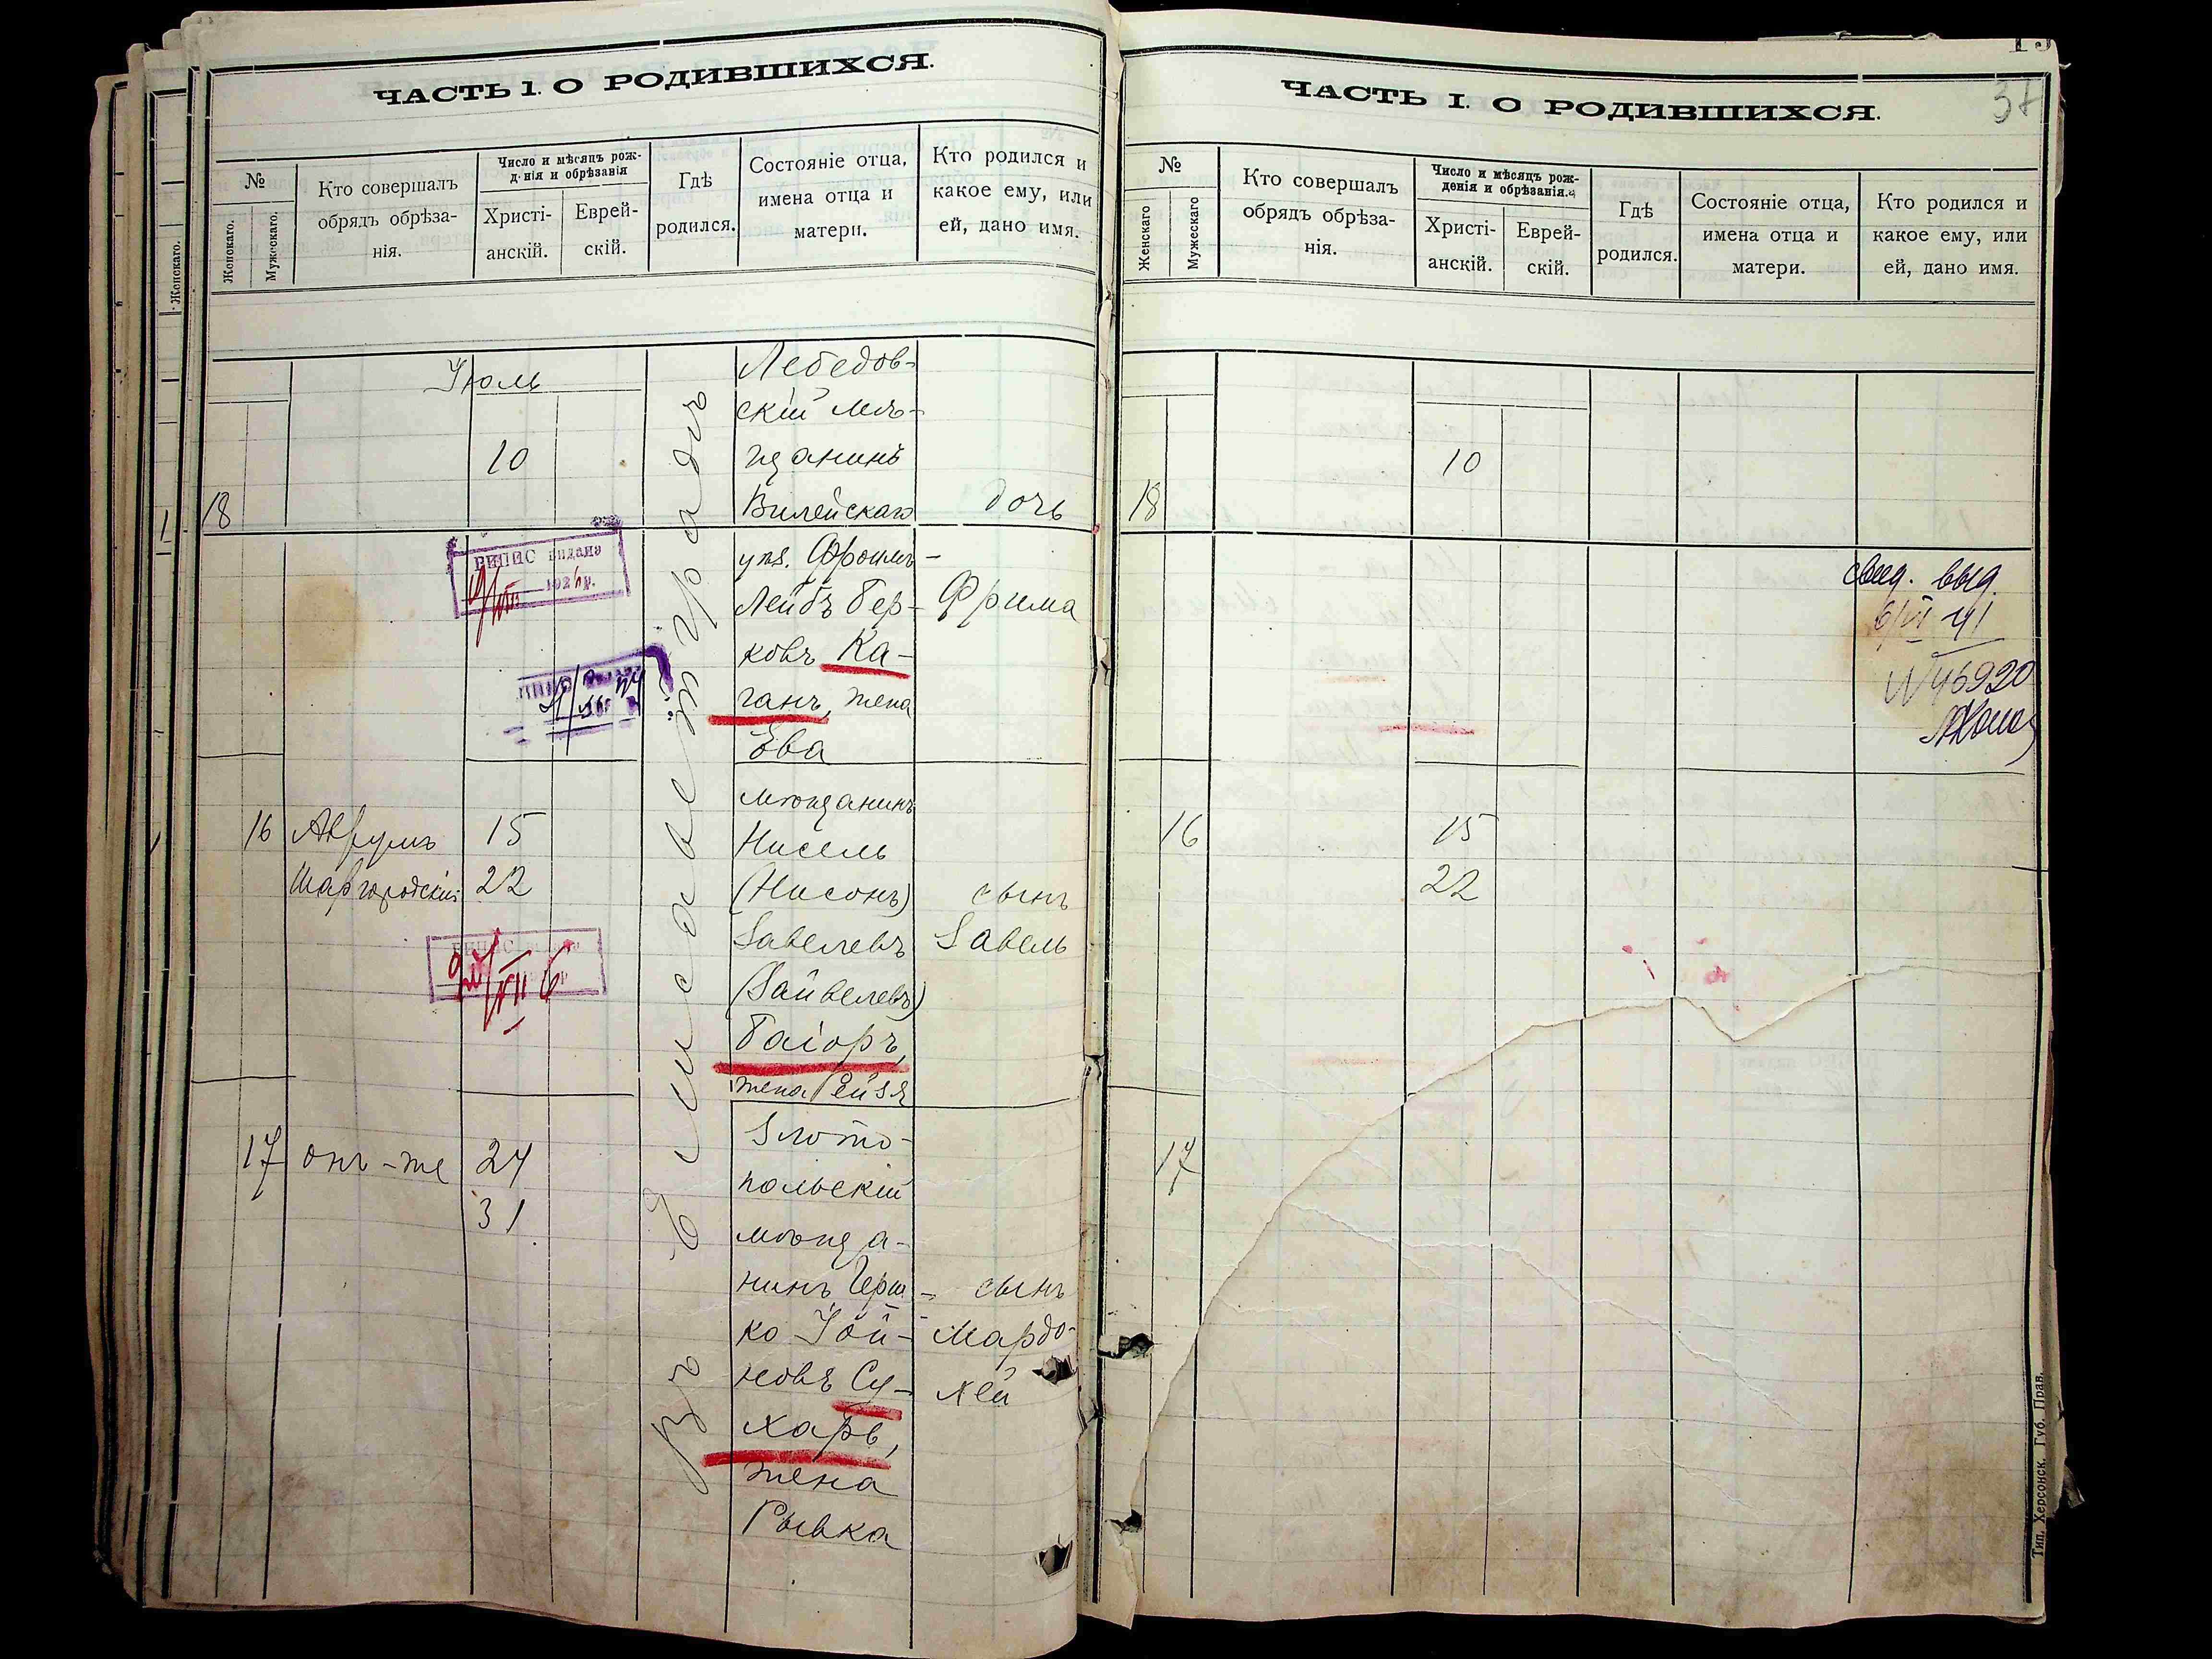 ЧАСТЬ 1. О РОДИВШИХСЯ.
№
Женскаго.
Мужескаго.
Кто совершалъ
обрядъ обрѣза-
нія.
Число и мѣсяцъ рож-
д нія и обрѣзанія
Христі-
анскій.
Еврей-
скій.
Гдѣ
родился.
Состояніе отца,
имена отца и
матери.
Кто родился и
какое ему, или
ей, дано имя.
Женскаго.
Іюль
18
10
Лебедов-
скій мѣ-
щанинъ
Вилейскаго
уѣз. Фроимъ-
Лейбъ Бер-
ковъ Ка-
ганъ, жена
Ева
дочь
Фрима
ВИПИС видана
16
Аврумъ
Шаргородскій
15
22
мѣщанинъ
Нисель
(Нисонъ)
Завелевъ
(Зайвелевъ)
Таіоръ,
жена Рейзя
сынъ
Завель
17
онъ-же
24
31
Злото-
польскій
мѣща-
нинъ Герш-
ко Іой-
новъ Су-
харь,
жена
Рывка
сынъ
Мардо-
хей
Въ Елисаветградѣ
ЧАСТЬ I. О РОДИВШИХСЯ.
37
№
Женскаго
Мужескаго
Кто совершалъ
обрядъ обрѣза-
нія.
Число и мѣсяцъ рож-
денія и обрѣзанія.
Христі-
анскій.
Еврей-
скій.
Гдѣ
родился.
Состояніе отца,
имена отца и
матери.
Кто родился и
какое ему, или
ей, дано имя.
18
10
свид. выд.
6/VI 41
№46920
16
15
22
17
Тип. Херсонск. Губ. Прав.